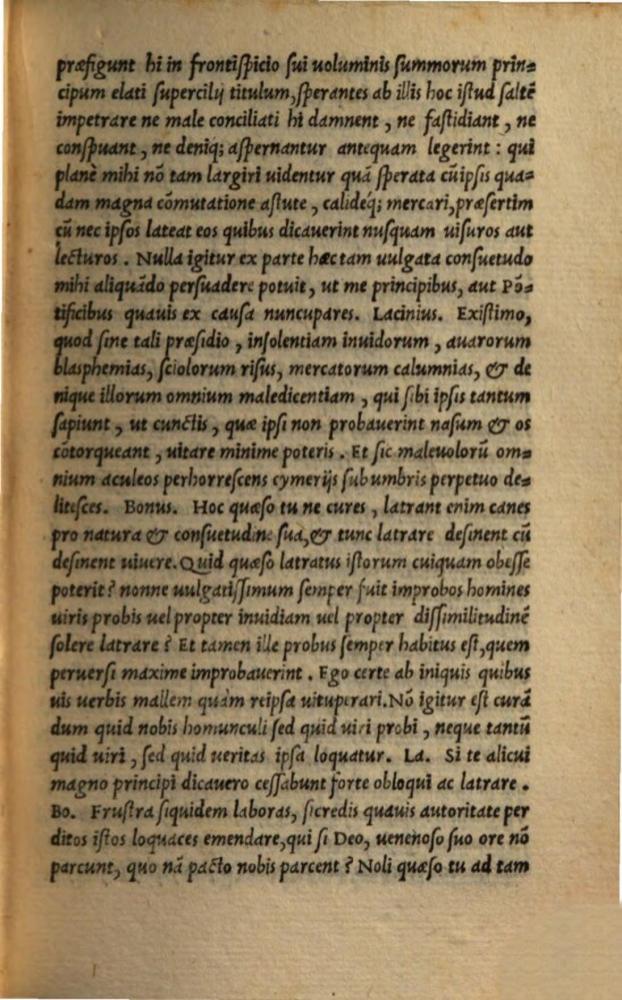 præfigunt hi in frontiſpicio ſui uoluminis ſummorum prin⸗
cipum elati ſupercilij titulum, ſperantes ab illis hoc iſtud ſaltẽ
impetrare ne male conciliati hi damnent, ne faſtidiant, ne
conſpuant, ne deniq; aſpernantur antequam legerint: qui
planè mihi nõ tam largiri uidentur quã ſperata cũipſis qua⸗
dam magna cõmutatione aſtute, calideq́; mercari, præſertim
cũ nec ipſos lateat eos quibus dicauerint nuſquam uiſuros aut
lecturos. Nulla igitur ex parte hæc tam uulgata conſuetudo
mihi aliquãdo perſuadere potuit, ut me principibus, aut Põ⸗
tificibus quauis ex cauſa nuncupares. Lacinius. Exiſtimo,
quod ſine tali præſidio, inſolentiam inuidorum, auarorum
blasphemias, ſciolorum riſus, mercatorum calumnias, & de
nique illorum omnium maledicentiam, qui ſibi ipſis tantum
ſapiunt, ut cunctis, quæ ipſi non probauerint naſum & os
cõtorqueant, uitare minime poteris. Et ſic maleuolorũ om⸗
nium aculeos perhorreſcens cymerijs ſub umbris perpetuo de⸗
liteſces. Bonus. Hoc quæſo tu ne cures, latrant enim canes
pro natura & conſuetudine ſua, & tunc latrare deſinent cũ
deſinent uiuere. Quid quæſo latratus iſtorum cuiquam obeſſe
poterit? nonne uulgatiſſimum ſemper fuit improbos homines
uiris probis uel propter inuidiam uel propter diſſimilitudinẽ
ſolere latrare? Et tamen ille probus ſemper habitus eſt, quem
peruerſi maxime improbauerint. Ego certe ab iniquis quibus
uis uerbis mallem quàm reipſa uituperari. Nõ igitur eſt curã
dum quid nobis homunculi ſed quid uiri probi, neque tantũ
quid uiri, ſed quid ueritas ipſa loquatur. La. Si te alicui
magno principi dicauero ceſſabunt forte obloqui ac latrare.
Bo. Fruſtra ſiquidem laboras, ſicredis quauis autoritate per
ditos iſtos loquaces emendare, qui ſi Deo, uenenoſo ſuo ore nõ
parcunt, quo nã pacto nobis parcent? Noli quæſo tu ad tam